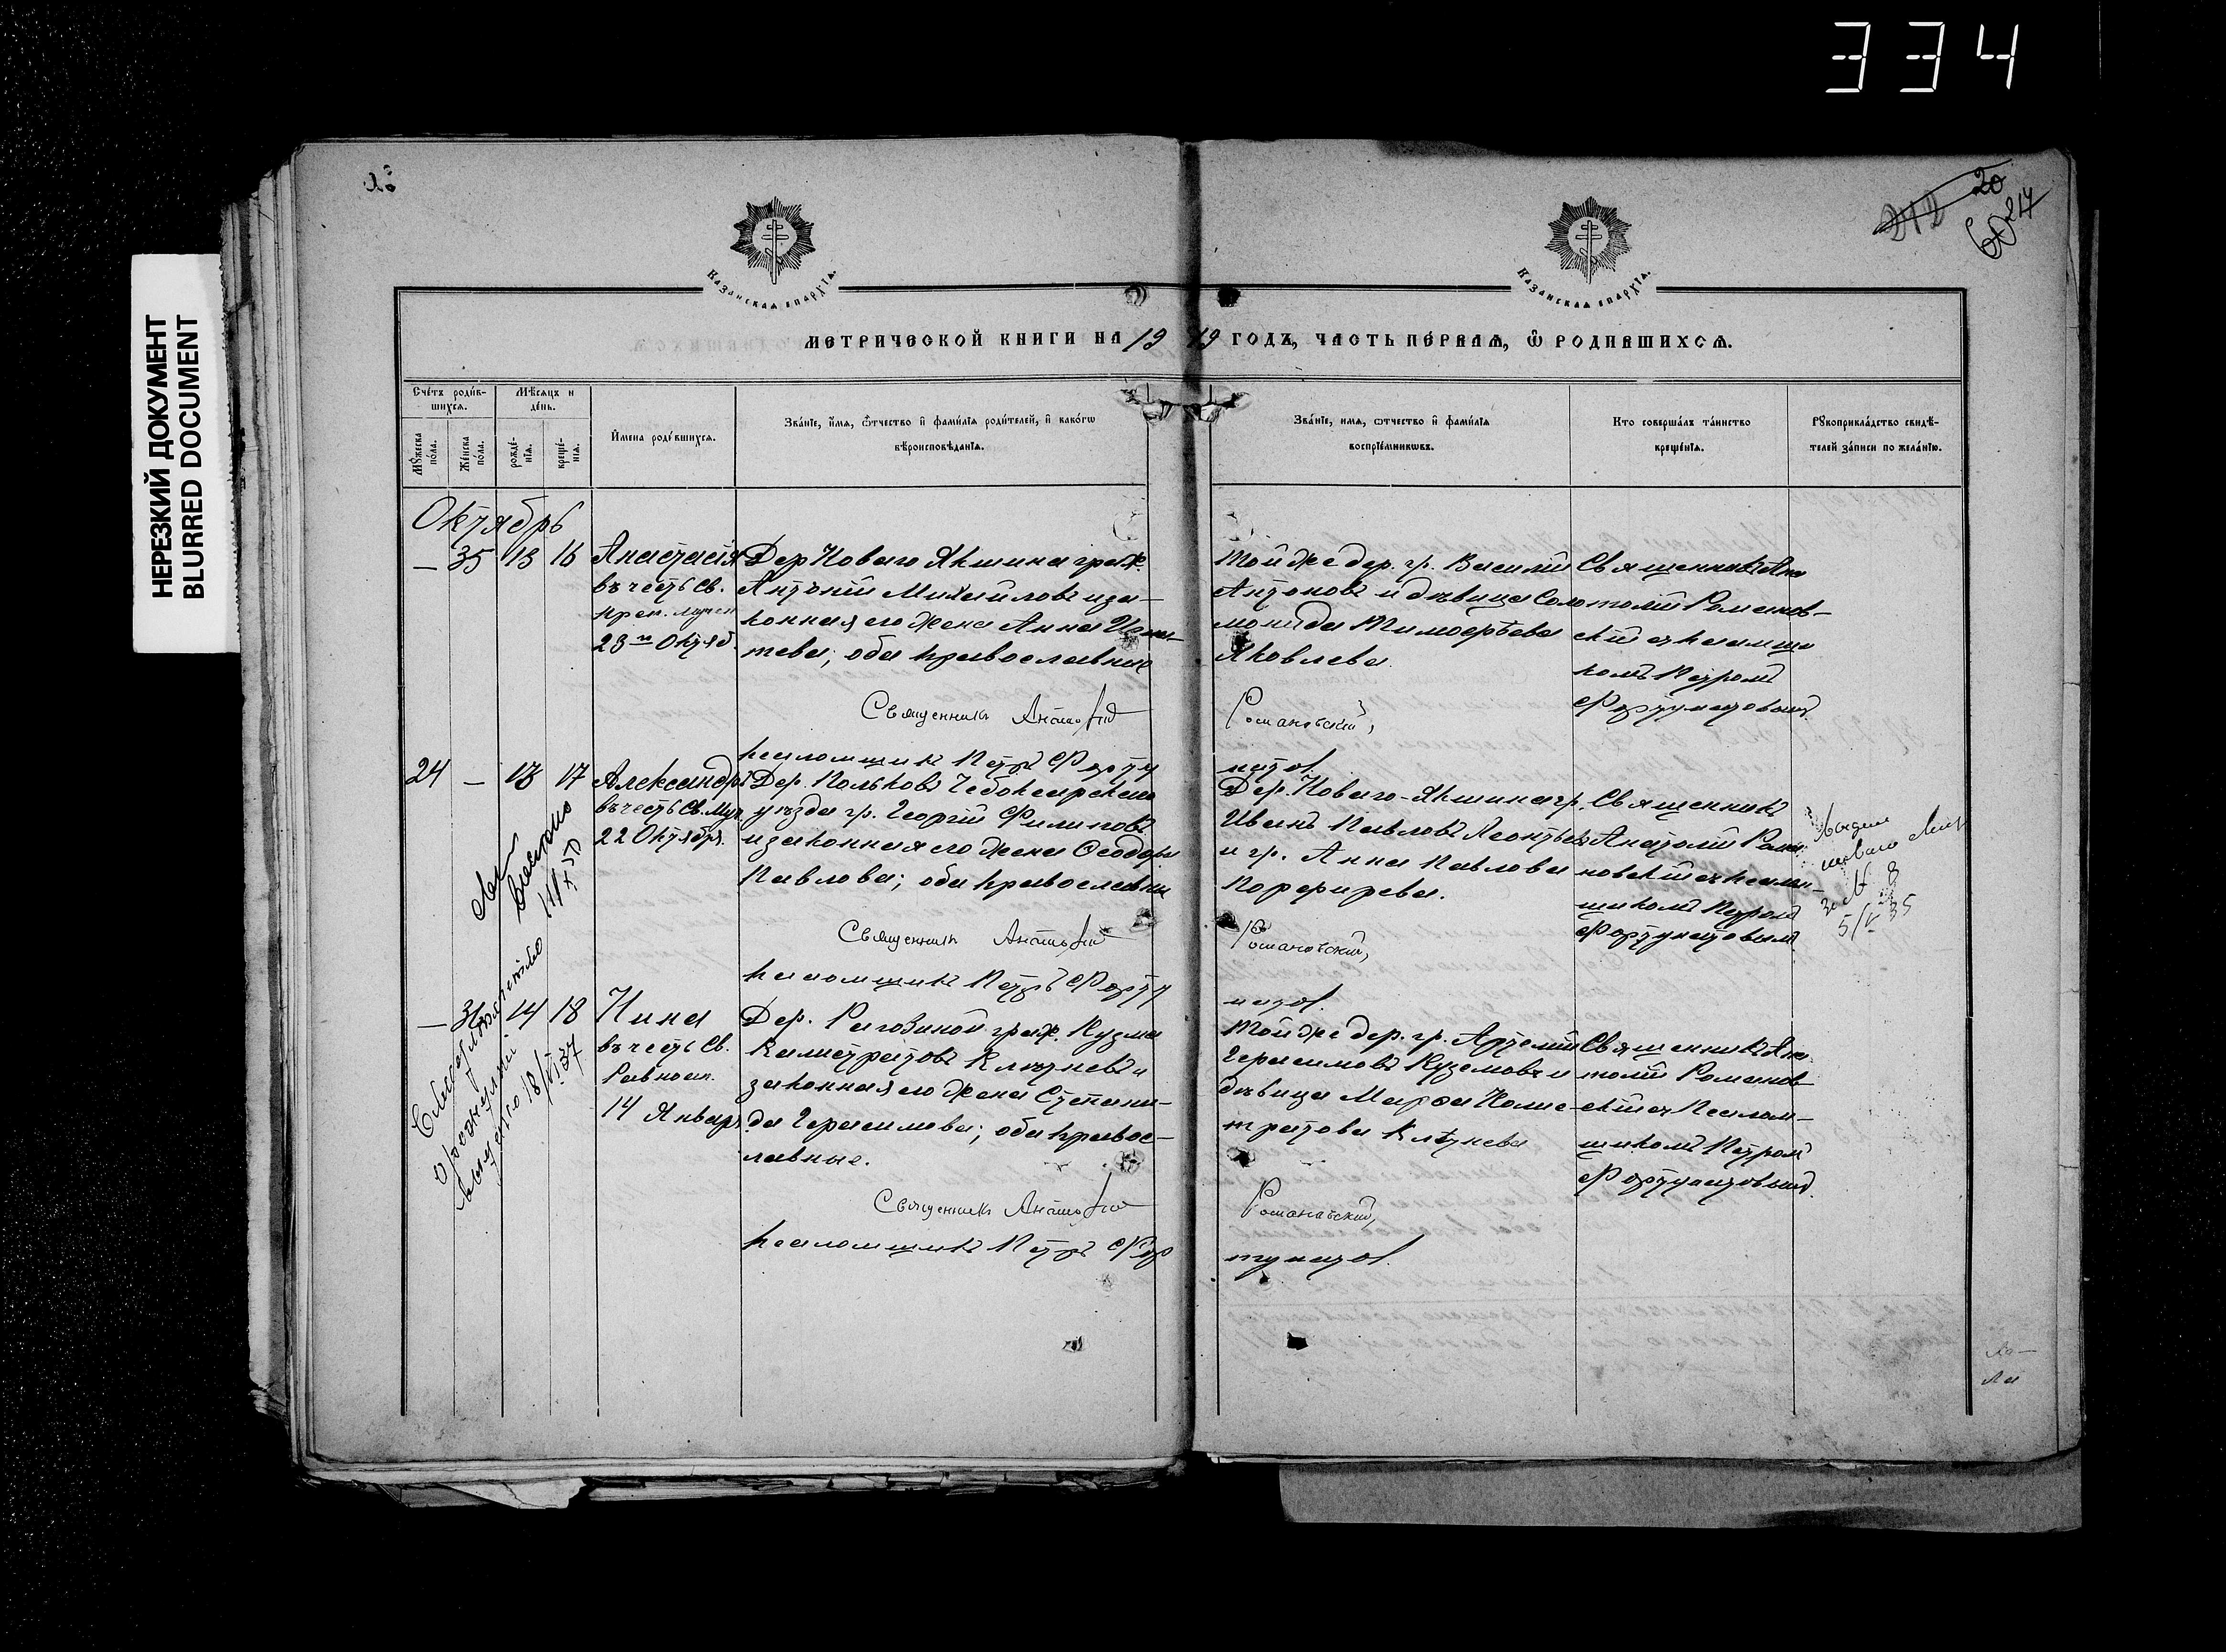 334
НЕРЕЗКИЙ ДОКУМЕНТ
BLURRED DOCUMENT
20
212
217
КАЗАНСКАЯ ЕПАРХІЯ.
КАЗАНСКАЯ ЕПАРХІЯ.
МЕТРИЧЕСКОЙ КНИГИ НА 1919 ГОДЪ, ЧАСТЬ ПЕРВАЯ, Ѡ РОДИВШИХСЯ.
Счетъ родившихся.
Мѣсяцъ и день.
Мужеска пола.
Женска пола.
рожденія.
крещенія.
Имена родившихся.
Званіе, имя, отчество и фамилія родителей, и какогѡ
вѣроисповѣданія.
Званіе, имя, ѡтчество и фамилія
воспріемникѡвъ.
Кто совершалъ таинство
крещенія.
Рукоприкладство свидѣ-
телей записи по желанію.
Октябрь
— 35 13 16 Анастасія
въ честь св.
28го Октяб.
Дер Новаго Якшина граж.
Антоній Михайловъ и за-
конная его жена Анна Игна-
тева; оба православные
Священникъ Анатолій
псаломщикъ Петръ Форту
Той же дер. гр. Василій
Антоновъ и дѣвица Соло-
монида Тимофѣева
Яковлева.
Романовскій,
натов.
Священникъ Ана
толій Романов-
скій съ псаломщи
комъ Петромъ
Фортунатовымъ.
24 — 13 17 Александръ
въ честь св. Муч.
22 Октября.
Дер. Польковъ Чебоксарскаго
уѣзда гр. Георгій Филиповъ
и законная его жена Ѳеодора
Павлова; оба православны
Священникъ Анатолій
псаломщикъ Петръ Форту
Дер. Новаго-Якшина гр.
Иванъ Павловъ Леонтьевъ
и гр. Анна Павлова
Порфирева.
Романовскій,
натов.
Священникъ
Анатолій Рома-
новскій съ псалом-
щикомъ Петромъ
Фортунатовымъ
за № 8
5/V 35
— 36 14 18 Нина
въ честь св.
Равноап.
14 Январ.
Дер. Рагозиной граж. Кузма
Калистратовъ Клѣтневъ и
законная его жена Степани-
да Герасимова; оба правос-
лавные.
Священникъ Анатолій
псаломщикъ Петръ Фор
Той же дер. гр. Артемій
Герасимовъ Кузмовъ и
дѣвица Марфа Калис-
тратова Клѣтнева
Романовскій,
тунатов.
Священникъ Ана
толій Романов-
скій съ Псалом-
щикомъ Петромъ
Фортунатовымъ.
18/VI 37